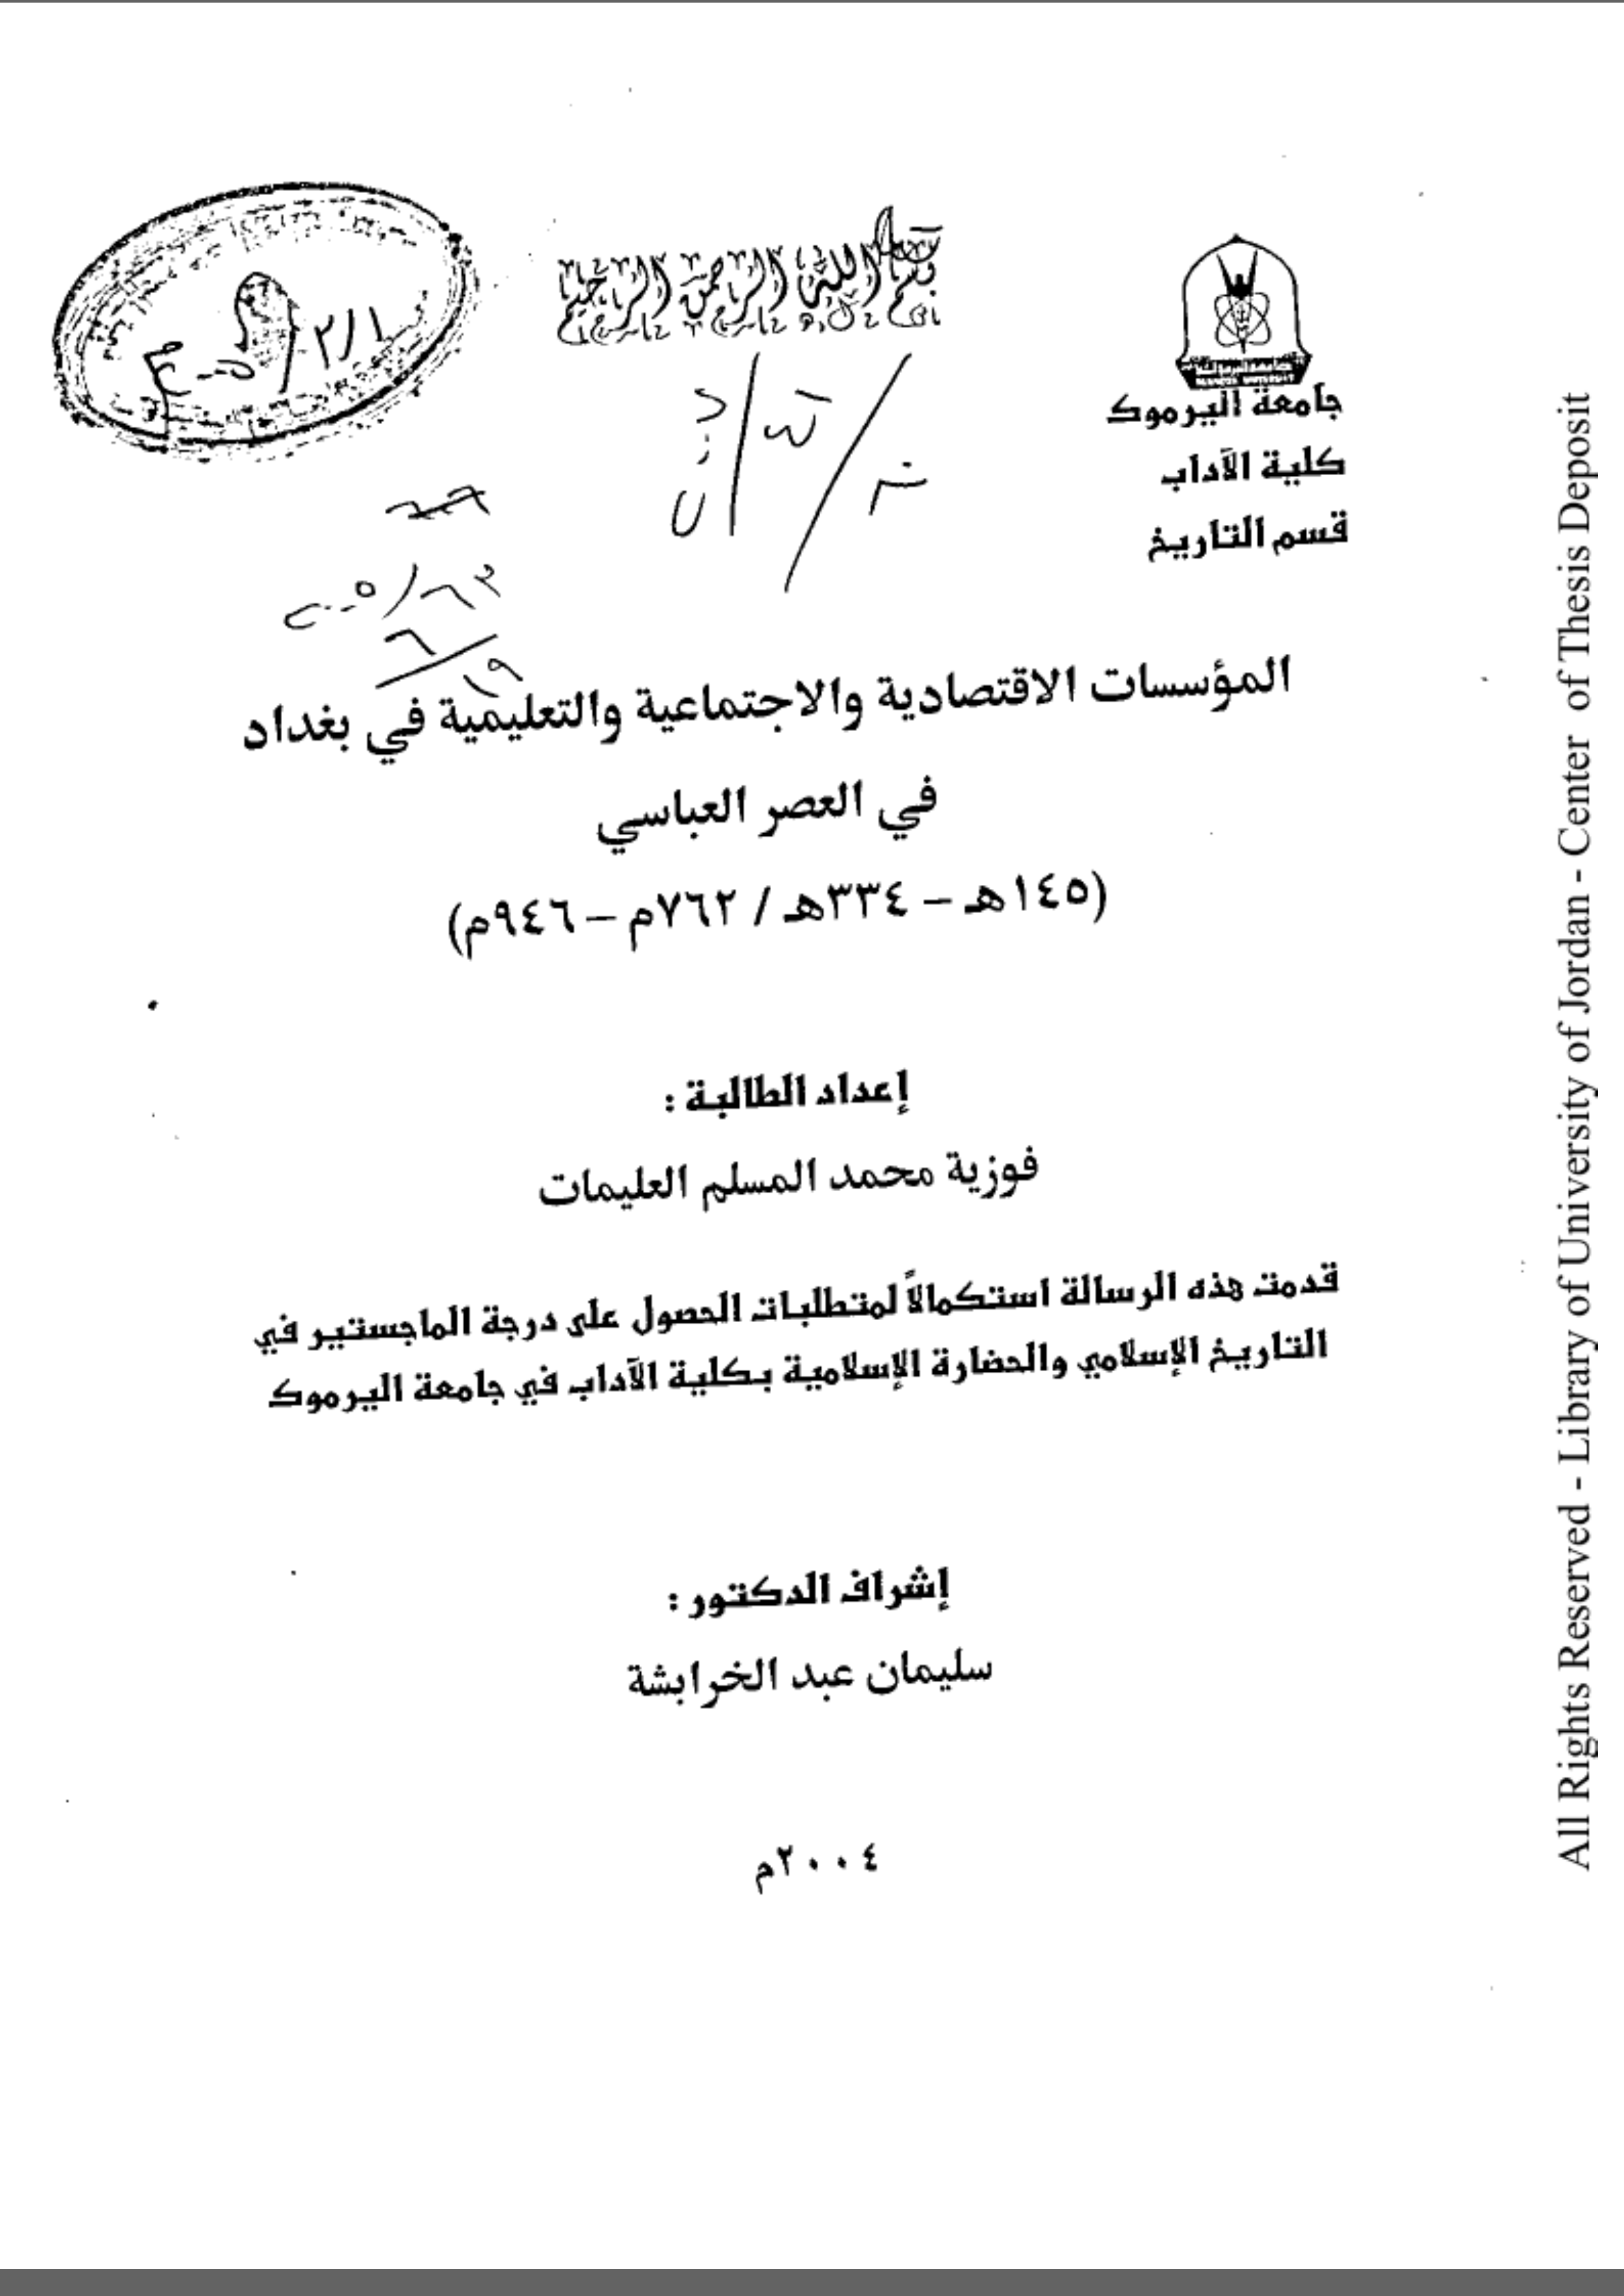 بسم الله الرحمن الرحيم
جامعة اليرموك
كلية الآداب
قسم التاريخ
المؤسسات الاقتصادية والاجتماعية والتعليمية في بغداد
في العصر العباسي
(١٤٥هـ – ٣٣٤هـ / ٧٦٢م – ٩٤٦م)
إعداد الطالبة :
فوزية محمد المسلم العليمات
قدمت هذه الرسالة استكمالاً لمتطلبات الحصول على درجة الماجستير في
التاريخ الإسلامي والحضارة الإسلامية بكلية الآداب في جامعة اليرموك
إشراف الدكتور :
سليمان عبد الخرابشة
٢٠٠٤م
All Rights Reserved - Library of University of Jordan - Center of Thesis Deposit